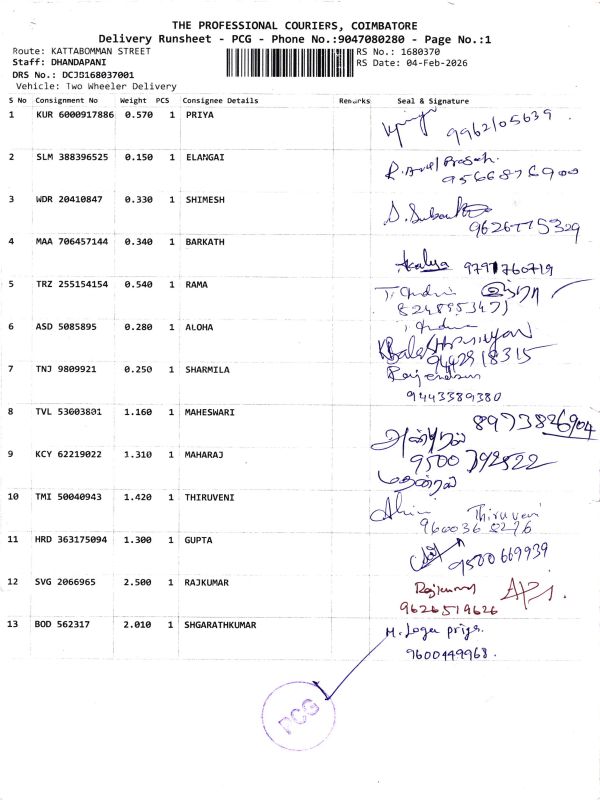 THE PROFESSIONAL COURIERS, COIMBATORE
Delivery Runsheet - PCG - Phone No.:9047080280 - Page No.:1
Route: KATTABOMMAN STREET RS No.: 1680370
Staff: DHANDAPANI RS Date: 04-Feb-2026
DRS No.: DCJB168037001
Vehicle: Two Wheeler Delivery
S No Consignment No Weight PCS Consignee Details Remarks Seal & Signature
1 KUR 6000917886 0.570 1 PRIYA
9962105639
2 SLM 388396525 0.150 1 ELANGAI
9566876900
3 WDR 20410847 0.330 1 SHIMESH
9626775329
4 MAA 706457144 0.340 1 BARKATH
9791760719
5 TRZ 255154154 0.540 1 RAMA
8248953471
6 ASD 5085895 0.280 1 ALOHA
9442918315
7 TNJ 9809921 0.250 1 SHARMILA
Rajendran
9443389380
8 TVL 53003801 1.160 1 MAHESWARI
8973826904
9 KCY 62219022 1.310 1 MAHARAJ
9500792522
10 TMI 50040943 1.420 1 THIRUVENI
Thiruveni
11 HRD 363175094 1.300 1 GUPTA
9500669939
12 SVG 2066965 2.500 1 RAJKUMAR
Rajkumar
9626519626
13 BOD 562317 2.010 1 SHGARATHKUMAR
M. Loga priya.
9600449968.
PCG